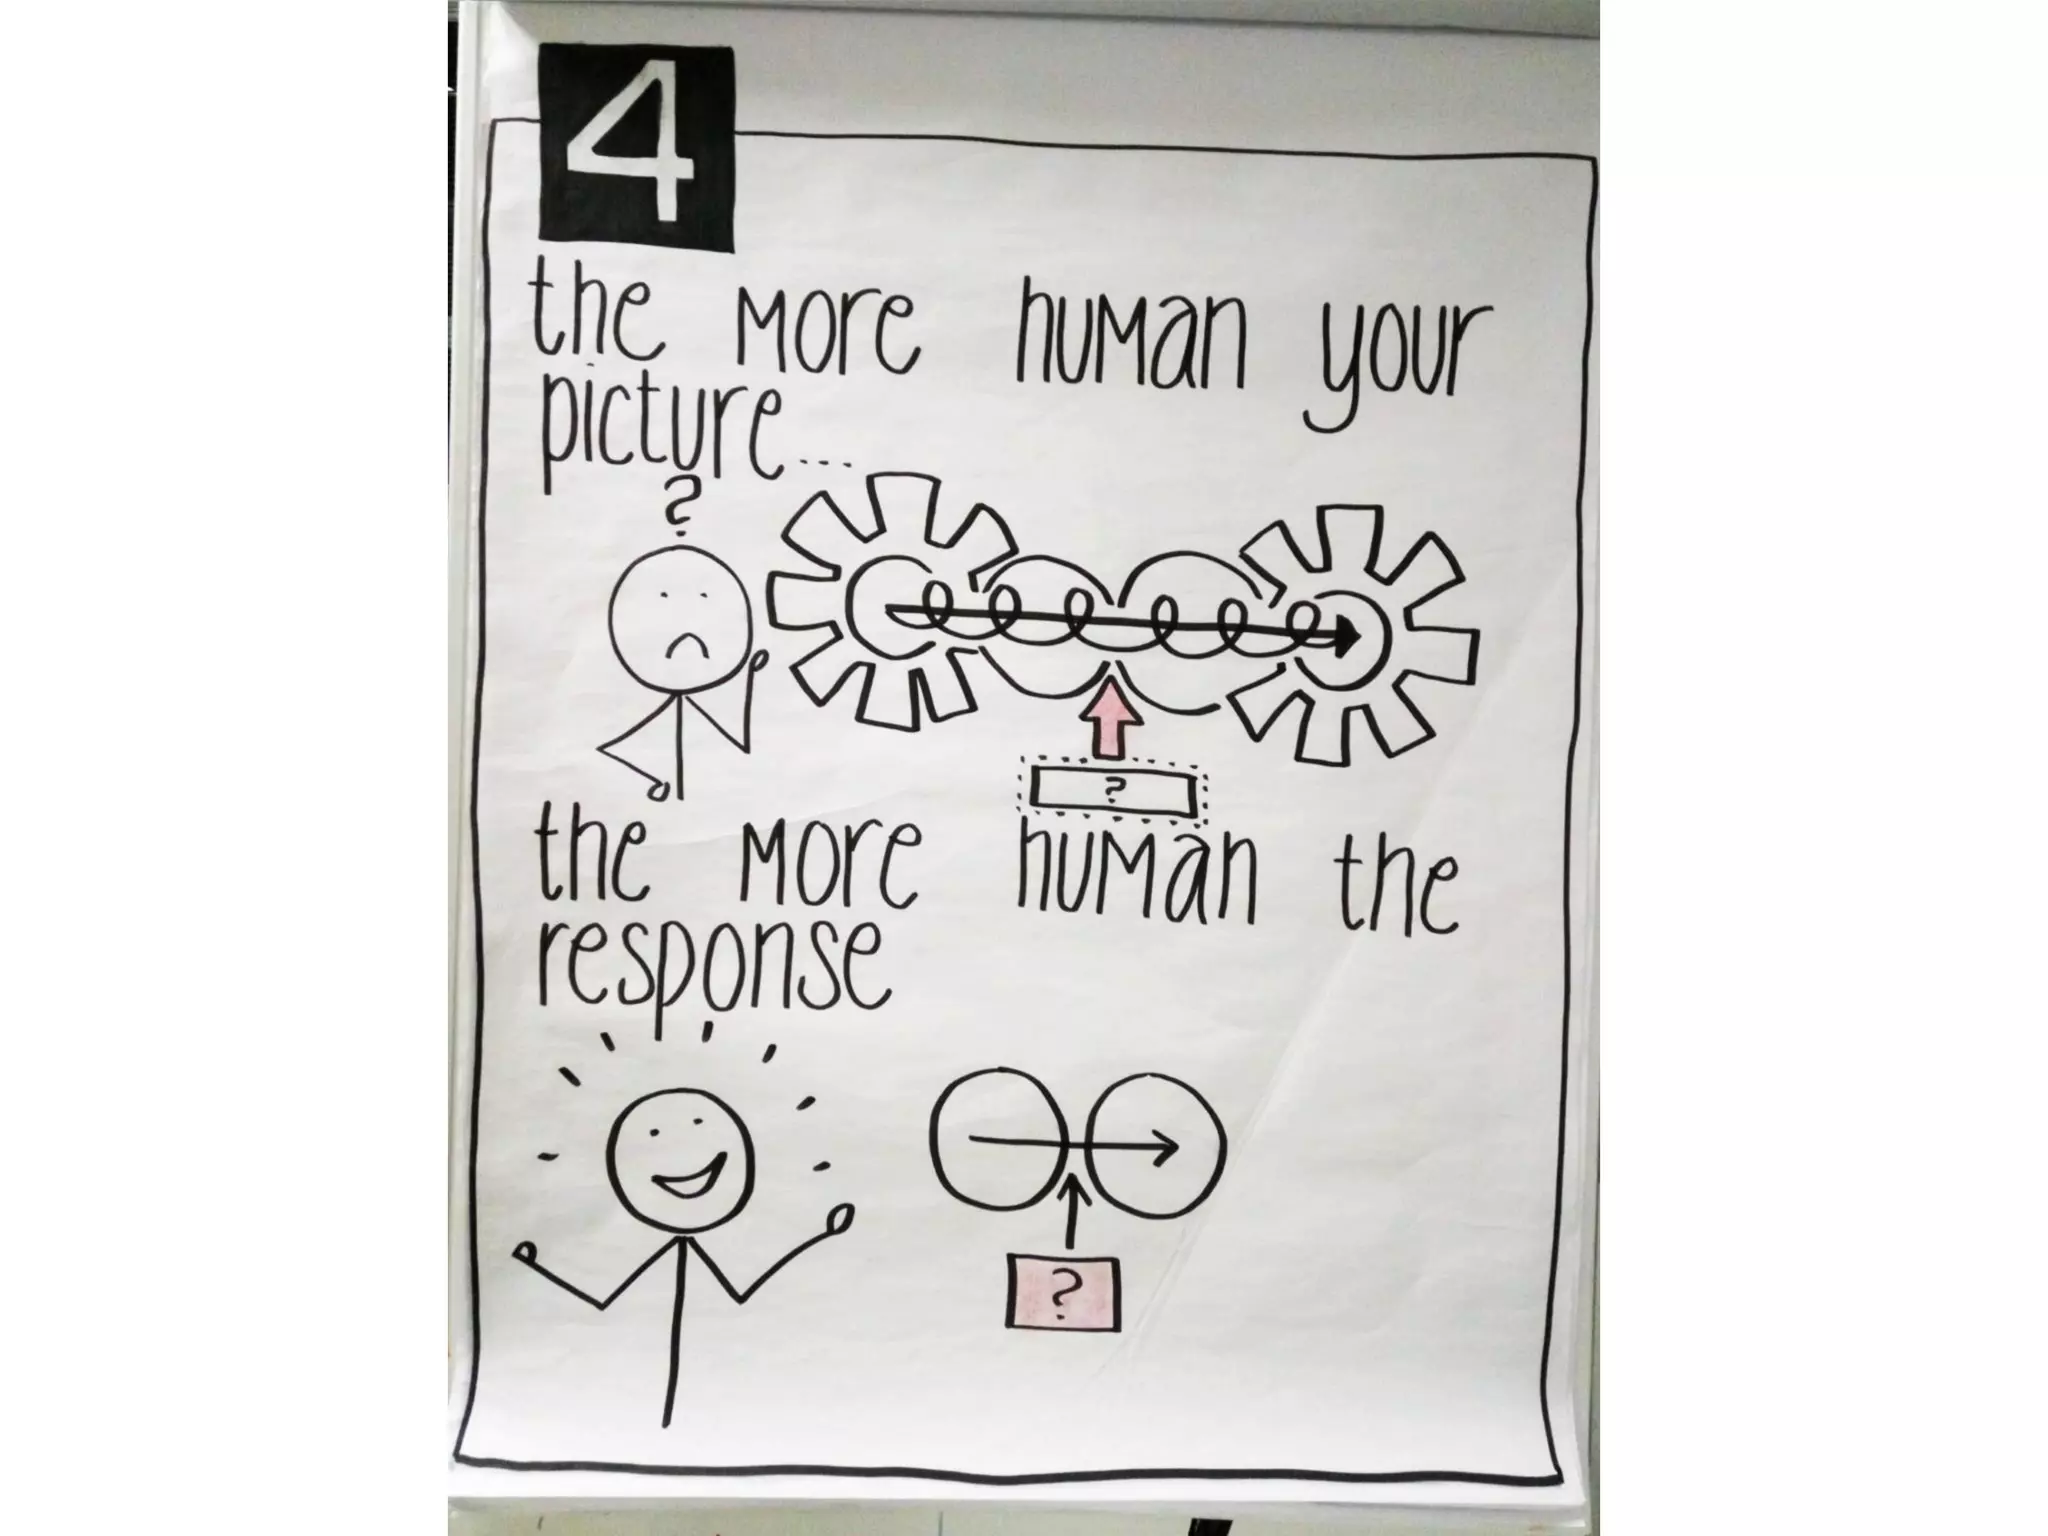 4
the more human your
picture...
?
?
the more human the
response
?